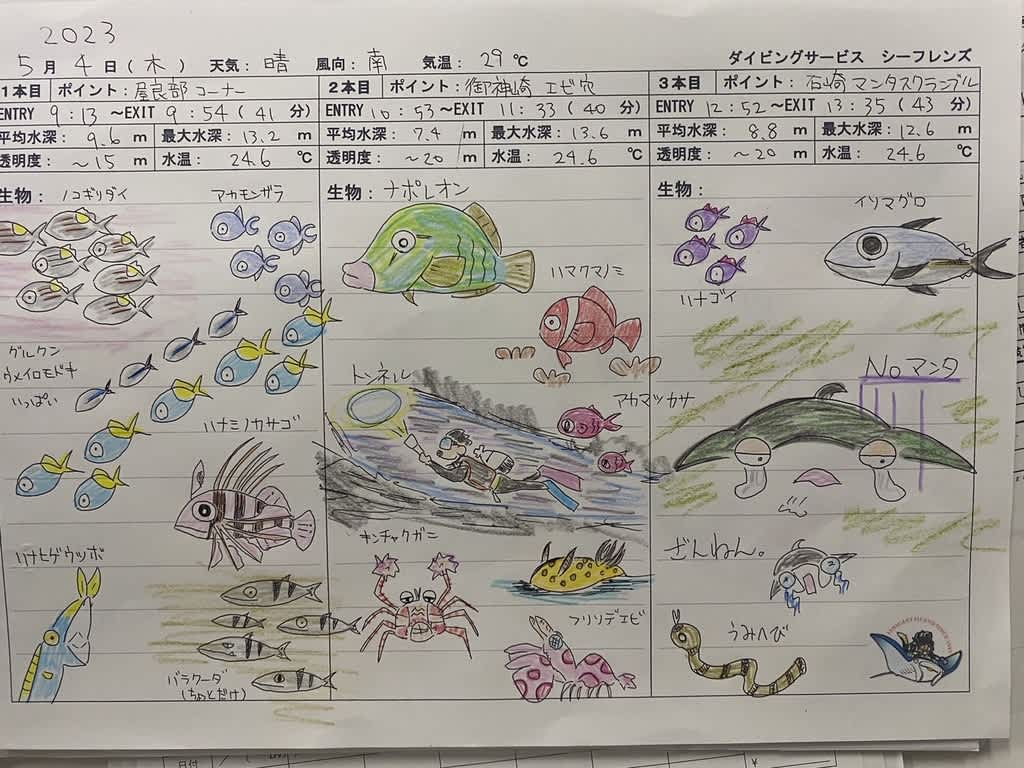 2023
5月4日(木) 天気：晴 風向：南 気温：29℃ ダイビングサービス シーフレンズ
1本目 ポイント：屋良部コーナー
ENTRY 9：13～EXIT 9：54(41分)
平均水深：9.6m 最大水深：13.2m
透明度：～15m 水温：24.6℃
生物：ノコギリダイ
アカモンガラ
グルクン
ウメイロモドキ
いっぱい
ハナミノカサゴ
ハナヒゲウツボ
バラクーダ
(ちょっとだけ)
2本目 ポイント：御神崎 エビ穴
ENTRY 10：53～EXIT 11：33(40分)
平均水深：7.4m 最大水深：13.6m
透明度：～20m 水温：24.6℃
生物：ナポレオン
ハマクマノミ
トンネル
アカマツカサ
キンチャクガニ
フリソデエビ
3本目 ポイント：石崎 マンタスクランブル
ENTRY 12：52～EXIT 13：35(43分)
平均水深：8.8m 最大水深：12.6m
透明度：～20m 水温：24.6℃
生物：
イソマグロ
ハナゴイ
Noマンタ
ざんねん。
うみへび
日付
¥